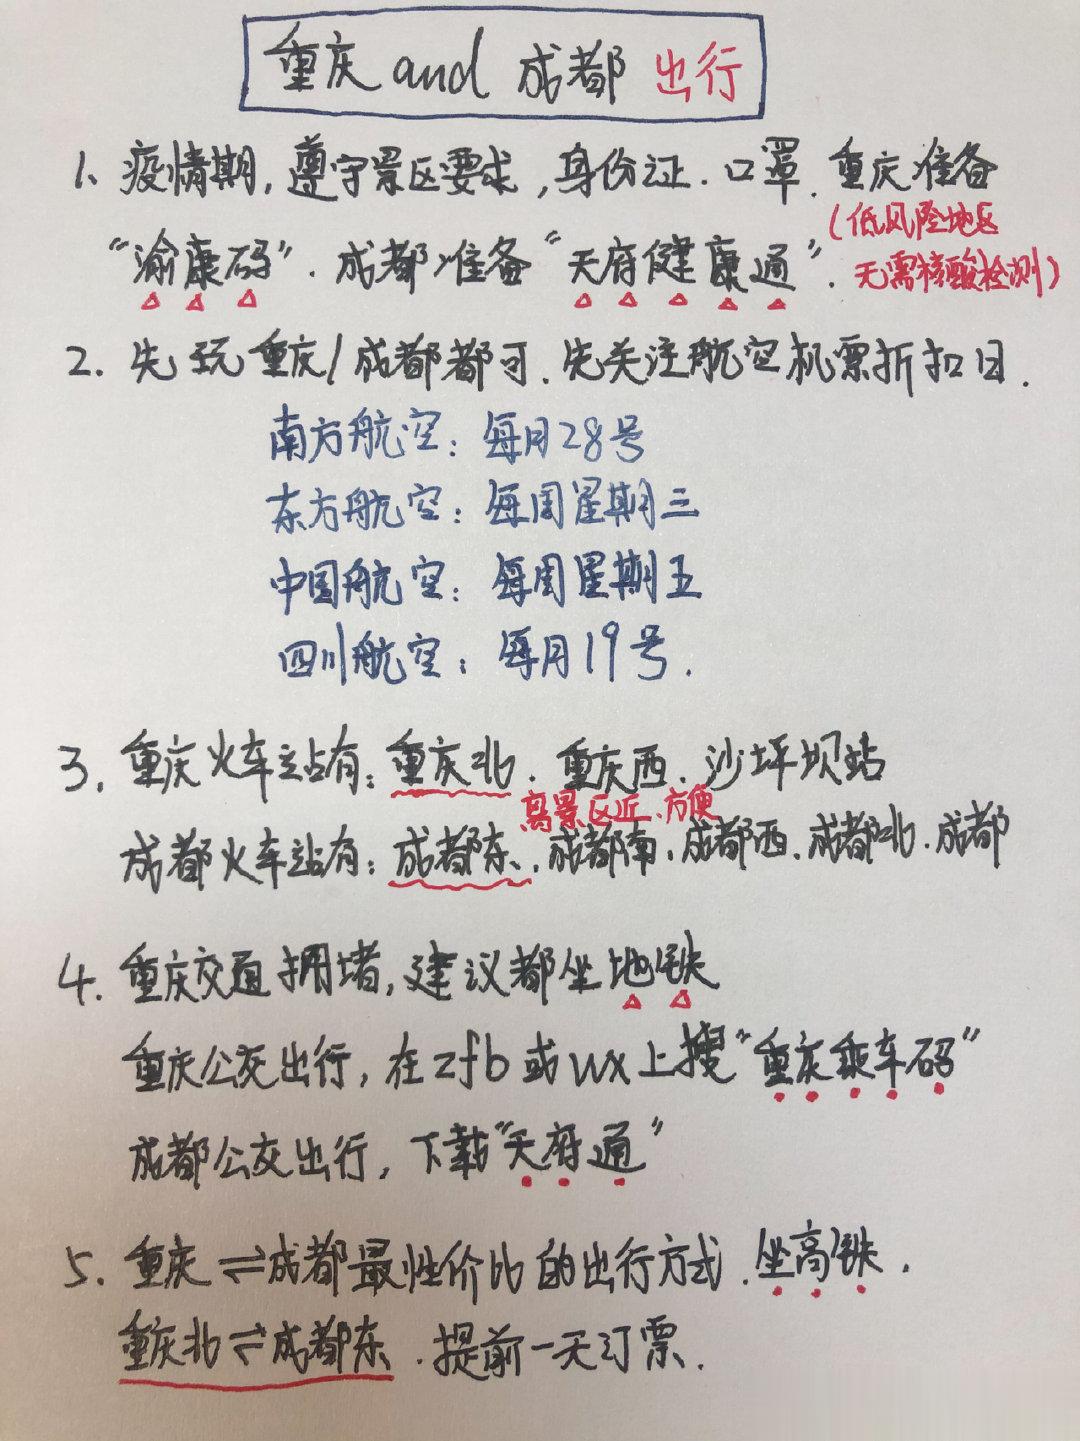 重庆 and 成都 出行
1、疫情期,遵守景区要求,身份证.口罩.重庆准备
“渝康码”.成都准备“天府健康通”.
(低风险地区
无需核酸检测)
2. 先玩重庆/成都都可.先关注航空机票折扣日.
南方航空:每月28号
东方航空:每周星期三
中国航空:每周星期五
四川航空:每月19号.
3. 重庆火车站有:重庆北.重庆西.沙坪坝站
离景区近.方便
成都火车站有:成都东.成都南.成都西.成都北.成都
4. 重庆交通拥堵,建议都坐地铁
重庆公交出行,在zfb或wx上搜“重庆乘车码”
成都公交出行,下载“天府通”
5. 重庆⇌成都最性价比的出行方式.坐高铁.
重庆北⇌成都东.提前一天订票.